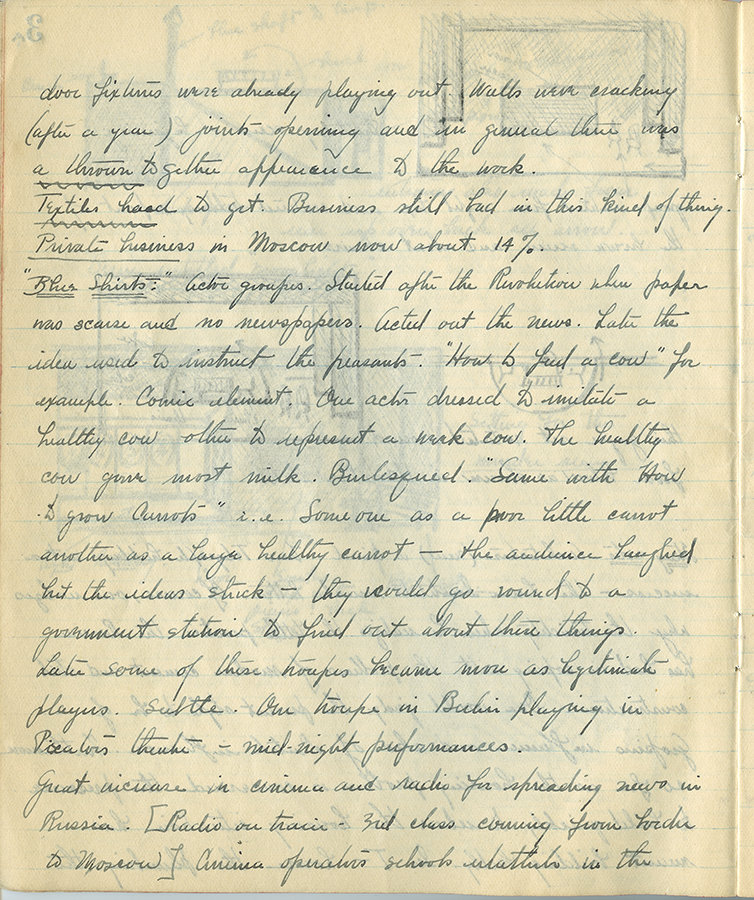 door fixtures were already playing out. Walls were cracking
(after a year) joints opening and in general there was
a thrown together appearance to the work.
Textiles hard to get. Business still bad in this kind of thing.
Private business in Moscow now about 14%.
"Blue Shirts:" Actor groupes. Started after the Revolution when paper
was scarse and no newspapers. Acted out the news. Late the
idea used to instruct the peasants. "How to feed a cow" for
example. Comic element. One actor dressed to imitate a
healthy cow other to represent a weak cow. The healthy
cow gave most milk. Burlesqued. "Same with How
to grow Carrots" i.e. Someone as a poor little carrot
another as a large healthy carrot — the audience laughed
but the ideas stuck — they would go round to a
government station to find out about these things.
Late some of these troupes became more as legitimate
players. Subtle. One troupe in Berlin playing in
Picators theatre – mid-night performances.
Great increase in cinema and radio for spreading news in
Russia. [Radio on train - 3rd class coming from border
to Moscow] Cinema operators schools in the